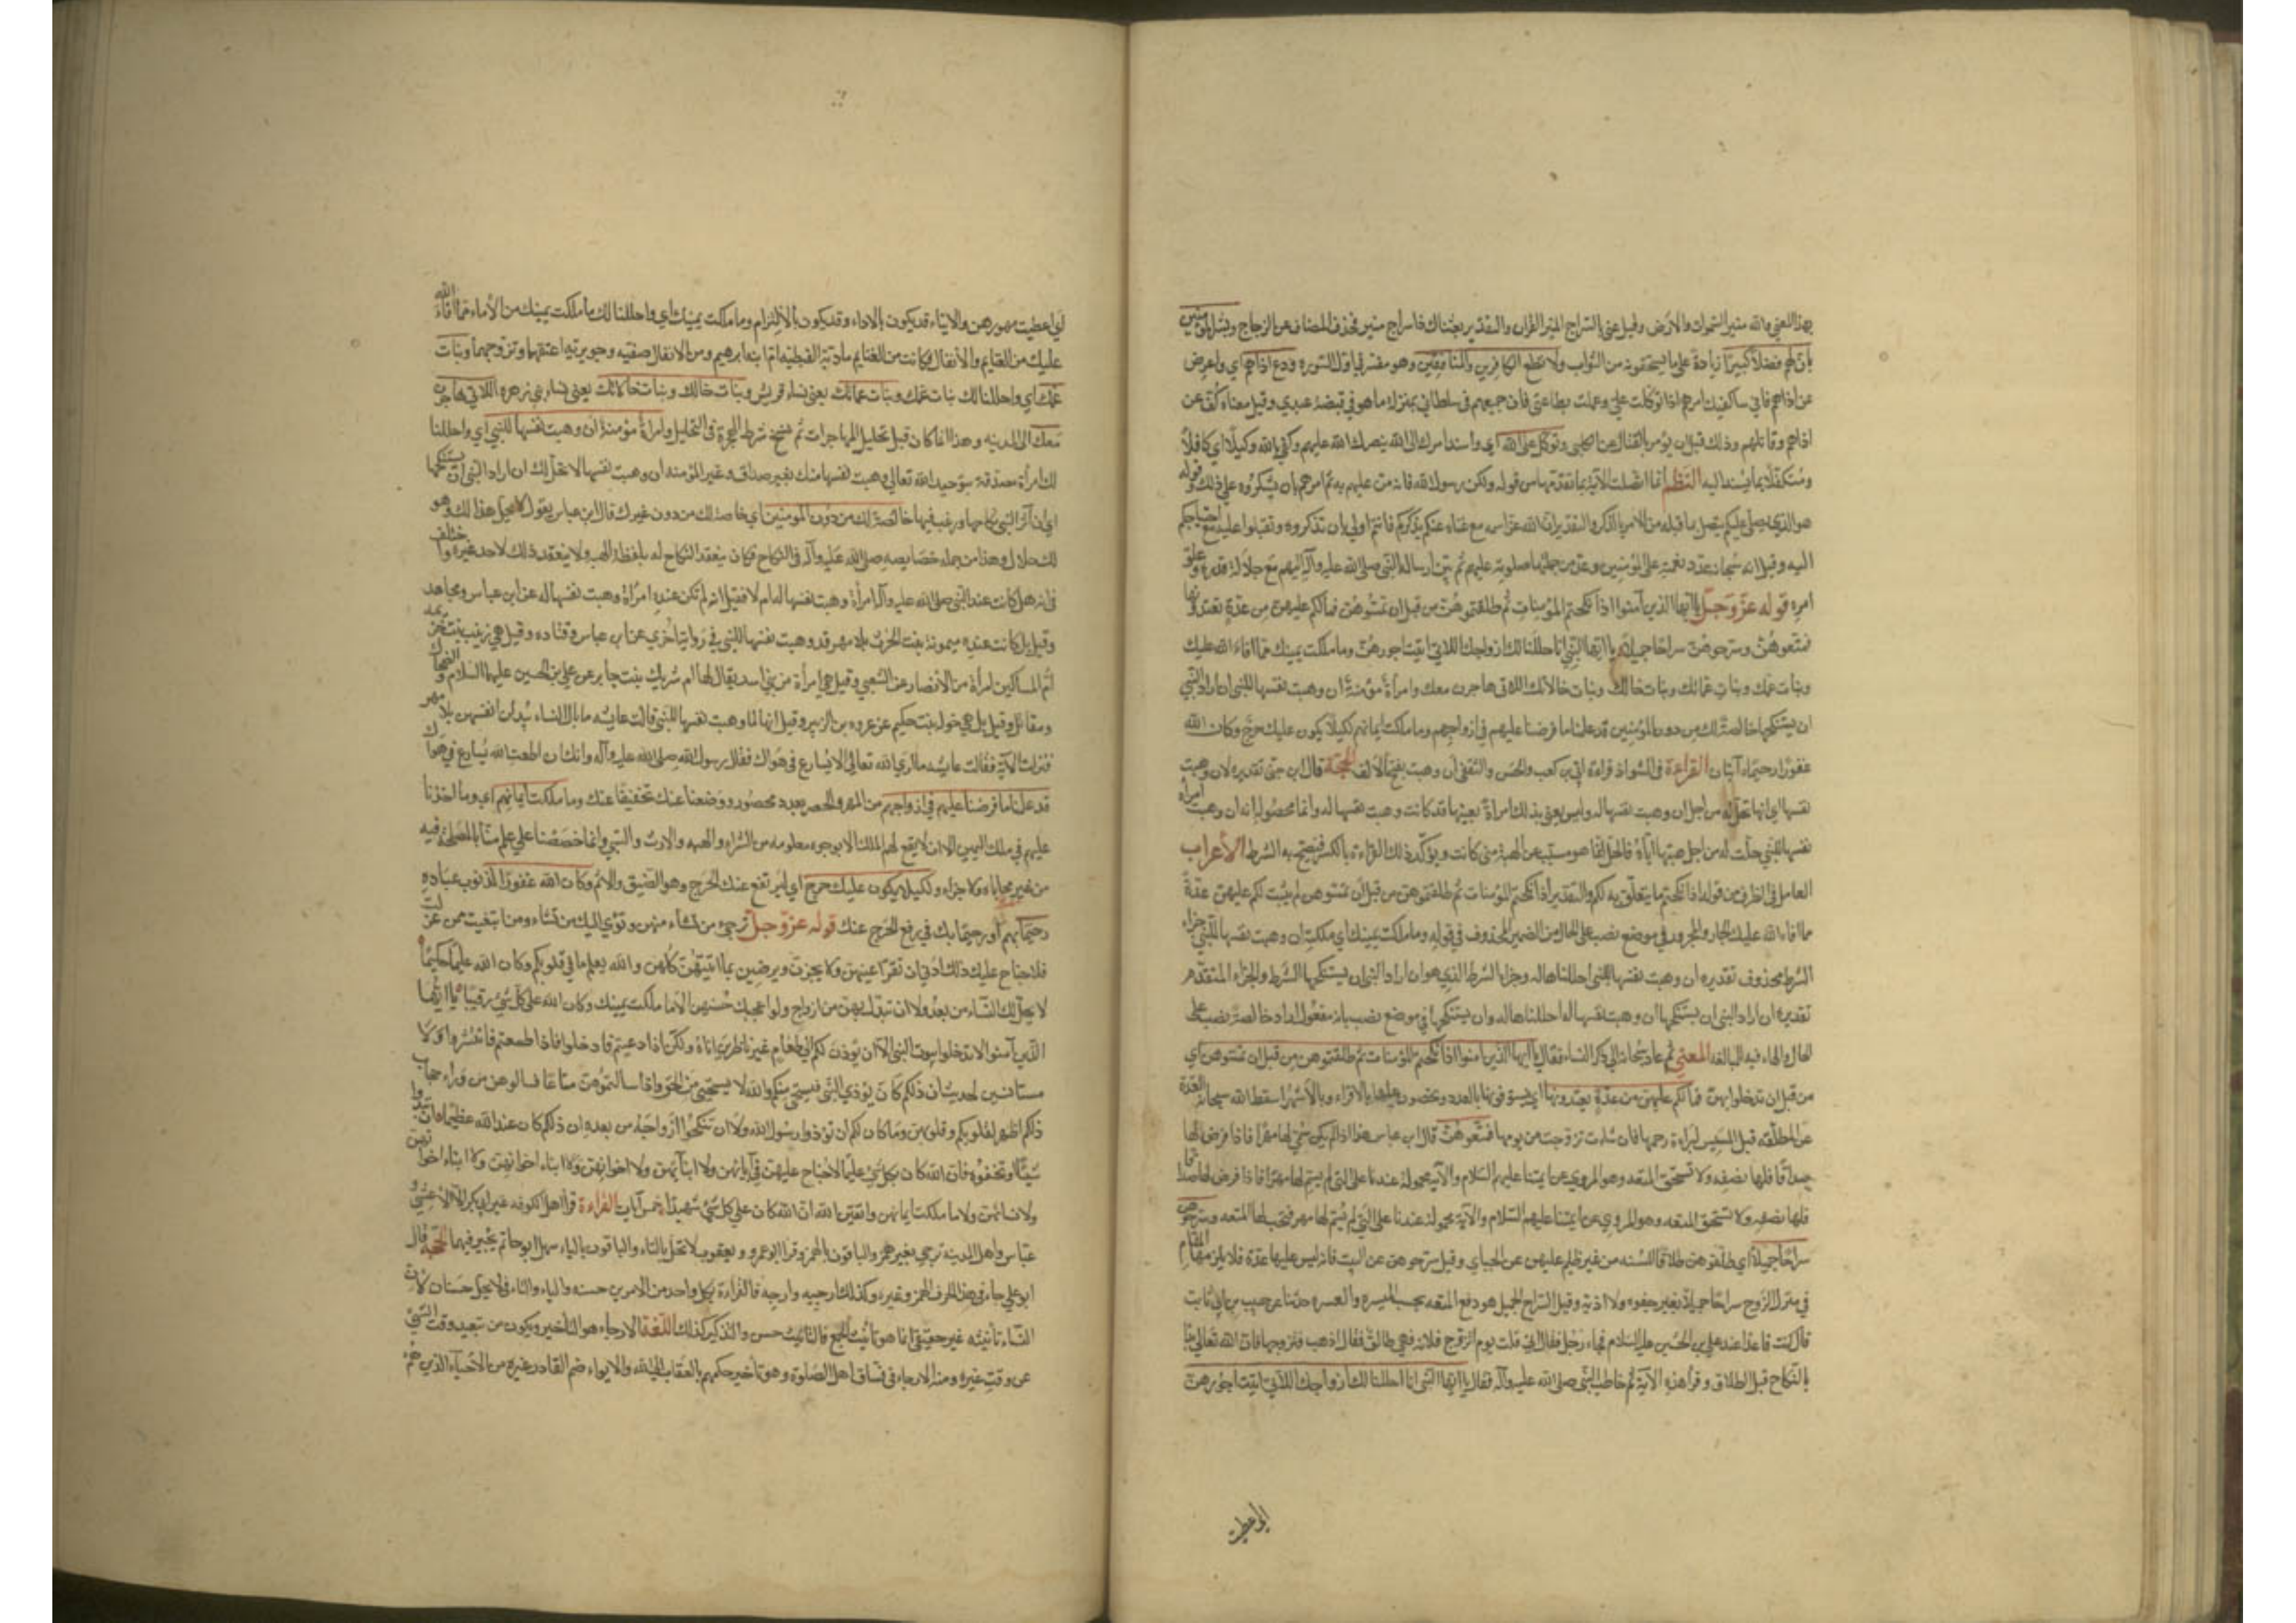 بهذا المعنى والله منير السموات والارض وقيل عنى بالسراج المنير القران والتقدير بعثناك ذا سراج منير فحذف المضاف عن الزجاج وبشر المؤمنين
بان لهم فضلا كبيرا زيادة على ما يستحقونه من الثواب ولا تطع الكافرين والمنافقين وهو مفسر في اول السورة ودع اذاهم اي واعرض
عن اذاهم فاني ساكفيك امرهم اذا توكلت علي وعملت بطاعتي فان جميعهم في سلطاني بمنزلة ما هو في قبضة عبدي وقيل معناه كف عن
اذاهم وقتالهم وذلك قبل ان يؤمر بالقتال عن الكلبي وتوكل على الله اي واسند امرك الى الله ينصرك الله عليهم وكفى بالله وكيلا اي كافلا
ومتكفلا بما يسند اليه النظم انما اتصلت الآية بما تقدمها من قوله ولكن رسول الله فانه من عليهم به ثم امرهم بان يشكروه على ذلك وقوله
هو الذي يصلي عليكم يتصل بما قبله من الامر بالذكر والتقدير ان الله عز اسمه مع غناه عنكم يذكركم فانتم اولى بان تذكروه وتقبلوا عليه مع احتياجكم
اليه وقيل انه سبحانه عدد نعمه على المؤمنين وعد من جملتها صلوته عليهم ثم بين ارساله النبي صلى الله عليه وآله اليهم مع جلالة قدره وعلو
امره قوله عز وجل يا ايها الذين آمنوا اذا نكحتم المؤمنات ثم طلقتموهن من قبل ان تمسوهن فما لكم عليهن من عدة تعتدونها
فمتعوهن وسرحوهن سراحا جميلا يا ايها النبي انا احللنا لك ازواجك اللاتي اتيت اجورهن وما ملكت يمينك مما افاء الله عليك
وبنات عمك وبنات عماتك وبنات خالك وبنات خالاتك اللاتي هاجرن معك وامرأة مؤمنة ان وهبت نفسها للنبي ان اراد النبي
ان يستنكحها خالصة لك من دون المؤمنين قد علمنا ما فرضنا عليهم في ازواجهم وما ملكت ايمانهم لكيلا يكون عليك حرج وكان الله
غفورا رحيما آيتان القراءة في الشواذ قراءة ابي بن كعب والحسن والثقفي ان وهبت بفتح الالف الحجة قال ابن جنى تقديره لان وهبت
نفسها اي انها تحل له من اجل ان وهبت نفسها له وليس يعنى بذلك امرأة بعينها قد كانت وهبت نفسها له وانما محصوله انه ان وهبت امرأة
نفسها للنبي حلت له من اجل هبتها اياه فالحل انما هو مسبب عن الهبة متى كانت ويؤكد ذلك القراءة بالكسر فيصح به الشرط الأعراب
العامل في الظرف من قوله اذا نكحتم ما يتعلق به لكم والتقدير اذا نكحتم المؤمنات ثم طلقتموهن من قبل ان تمسوهن لم يثبت لكم عليهن عدة
مما افاء الله عليك الجار والمجرور في موضع نصب على الحال من الضمير المحذوف في قوله وما ملكت يمينك اي ملكته ان وهبت نفسها للنبي جزاء
الشرط محذوف تقديره ان وهبت نفسها للنبي احللناها له وجزاء الشرط الذي هو ان اراد النبي ان يستنكحها الشرط والجزاء المتقدم
تقديره ان اراد النبي ان يستنكحها ان وهبت نفسها له احللناها له وان يستنكحها في موضع نصب بانه مفعول اراد خالصة نصب على
الحال والهاء فيه للمبالغة المعنى ثم عاد سبحانه الى ذكر النساء فقال يا ايها الذين امنوا اذا نكحتم المؤمنات ثم طلقتموهن من قبل ان تمسوهن اي
من قبل ان تدخلوا بهن فما لكم عليهن من عدة تعتدونها اي تستوفونها بالعدد وتحصون عليها بالاقراء وبالأشهر اسقط الله سبحانه العدة
عن المطلقه قبل المسيس لبراءة رحمها فان شاءت تزوجت من يومها فمتعوهن قال ابن عباس هذا اذا لم يكن سمى لها مهرا فاذا فرض لها
صداقا فلها نصفه ولا تستحق المتعه وهو المروي عن ايمتنا عليهم السلام والآيه محموله عندنا على التي لم يسم لها مهرا فاذا فرض لها صداقا
فلها نصفه ولا تستحق المتعه وهو المروي عن ايمتنا عليهم السلام والآية محمولة عندنا على التي لم يسم لها مهر فتجب لها المتعه وسرحوهن
سراحا جميلا اي طلقوهن طلاقا للسنه من غير ظلم عليهن عن الجبائي وقيل سرحوهن عن البيت فانه ليس عليها عدة فلا يلزمها المقام
في منزل الزوج سراحا جميلا بغير جفوة ولا اذية وقيل السراج الجميل هو دفع المتعه بحسب الميسرة والعسره حدثنا عن حبيب بن ابي ثابت
قال كنت قاعدا عند علي بن الحسين عليه السلام فجاء رجل فقال اني قلت يوم اتزوج فلانه فهي طالق فقال اذهب فتزوجها فان الله تعالى بدأ
بالنكاح قبل الطلاق وقرأ هذه الآية ثم خاطب النبي صلى الله عليه وآله فقال يا ايها النبي انا احللنا لك ازواجك اللاتي اتيت اجورهن
اي اعطيت
اي اعطيت مهورهن والايتاء قد يكون بالاداء وقد يكون بالالتزام وما ملكت يمينك اي واحللنا لك ما ملكت يمينك من الأماء مما افاء الله
عليك من الغنايم والأنفال فكانت من الغنايم مارية القبطيه ام ابنه ابرهيم ومن الانفال صفيه وجويريه اعتقهما وتزوجهما وبنات
عمك اي واحللنا لك بنات عمك وبنات عماتك يعنى نساء قريش وبنات خالك وبنات خالاتك يعنى نساء بني زهره اللاتي هاجرن
معك الى المدينه وهذا انما كان قبل تحليل غير المهاجرات ثم نسخ شرط الهجرة في التحليل وامرأة مؤمنة ان وهبت نفسها للنبي اي واحللنا
لك امرأة مصدقة بتوحيد الله تعالى وهبت نفسها منك بغير صداق وغير المؤمنه ان وهبت نفسها لا تحل لك ان اراد النبي ان يستنكحها
اي ان آثر النبي نكاحها ورغب فيها خالصة لك من دون المؤمنين اي خاصة لك من دون غيرك قال ابن عباس يقول لا يحل هذا لغيرك وهو
لك حلال وهذا من جمله خصايصه صلى الله عليه وآله في النكاح فكان ينعقد النكاح له بلفظ الهبه ولا ينعقد ذلك لاحد غيره واختلف
في انه هل كانت عند النبي صلى الله عليه وآله امرأة وهبت نفسها له ام لا فقيل انه لم تكن عنده امرأة وهبت نفسها له عن ابن عباس ومجاهد
وقيل بل كانت عنده ميمونة بنت الحرث بلا مهر قد وهبت نفسها للنبي في رواية اخرى عن ابن عباس وقتاده وقيل هي زينب بنت خزيمه
ام المساكين امرأة من الأنصار عن الشعبي وقيل هي امرأة من بني اسد يقال لها ام شريك بنت جابر عن علي بن الحسين عليهما السلام والضحاك
ومقاتل وقيل بل هي خوله بنت حكيم عن عروه بن الزبير وقيل انها لما وهبت نفسها للنبي قالت عايشه ما بال النساء يبذلن انفسهن بلا مهر
فنزلت الآية فقالت عايشه ما ارى الله تعالى الا يسارع في هواك فقال رسول الله صلى الله عليه وآله وانك ان اطعت الله يسارع في هواك
قد علمنا ما فرضنا عليهم في ازواجهم من المهر والحصر بعدد محصور ووضعنا عنك تخفيفا عنك وما ملكت ايمانهم اي وما اخذنا
عليهم في ملك اليمين الا ان لا يقع لهم الملك الا بوجوه معلومه من الشراء والهبه والارث والسبي وانما خصصنا على علم منا بالمصلحة فيه
من غير محاباه ولا جزاء ولكيلا يكون عليك حرج اي ليرتفع عنك الحرج وهو الضيق والاثم وكان الله غفورا لذنوب عباده
رحيما بهم او رحيما بك في رفع الحرج عنك قوله عز وجل ترجي من تشاء منهن وتؤي اليك من تشاء ومن ابتغيت ممن عزلت
فلا جناح عليك ذلك ادنى ان تقر اعينهن ولا يحزن ويرضين بما اتيتهن كلهن والله يعلم ما في قلوبكم وكان الله عليما حكيما
لا يحل لك النساء من بعد ولا ان تبدل بهن من ازواج ولو اعجبك حسنهن الا ما ملكت يمينك وكان الله على كل شئ رقيبا يا ايها
الذين آمنوا لا تدخلوا بيوت النبي الا ان يؤذن لكم الى طعام غير ناظرين اناه ولكن اذا دعيتم فادخلوا فاذا طعمتم فانتشروا ولا
مستانسين لحديث ان ذلكم كان يؤذي النبي فيستحيي منكم والله لا يستحيي من الحق واذا سالتموهن متاعا فسالوهن من وراء حجاب
ذلكم اطهر لقلوبكم وقلوبهن وما كان لكم ان تؤذوا رسول الله ولا ان تنكحوا ازواجه من بعده ان ذلكم كان عند الله عظيما ان تبدوا
شيئا او تخفوه فان الله كان بكل شئ عليما لا جناح عليهن في آبائهن ولا ابنائهن ولا اخوانهن ولا ابناء اخوانهن ولا ابناء اخواتهن
ولا نسائهن ولا ما ملكت ايمانهن واتقين الله ان الله كان على كل شئ شهيدا خمس آيات القراءة قرأ اهل الكوفه غير ابي بكر الا الأعشى و
عباس واهل المدينه ترجي بغير همز والباقون بالهمز وقرأ ابو عمرو ويعقوب لا تحل بالتاء والباقون بالياء سهل ابو حاتم يخير فيهما الحجة قال
ابو علي جاء في هذا الحرف الهمز وغيره وكذلك ارجيه وارجه فالقراءة بكل واحد من الامرين حسنه والياء والتاء في لا يحل حسنان لان
النساء تانيثه غير حقيقي انما هو تانيث الجمع فالتانيث حسن والتذكير كذلك اللغة الارجاء هو التأخير ويكون من تبعيد وقت الشئ
عن وقت غيره ومنه الارجاء في فساق اهل الصلوة وهو تأخير حكمهم بالعقاب الى الله والايواء ضم القادر غيره من الأحياء الذي هم